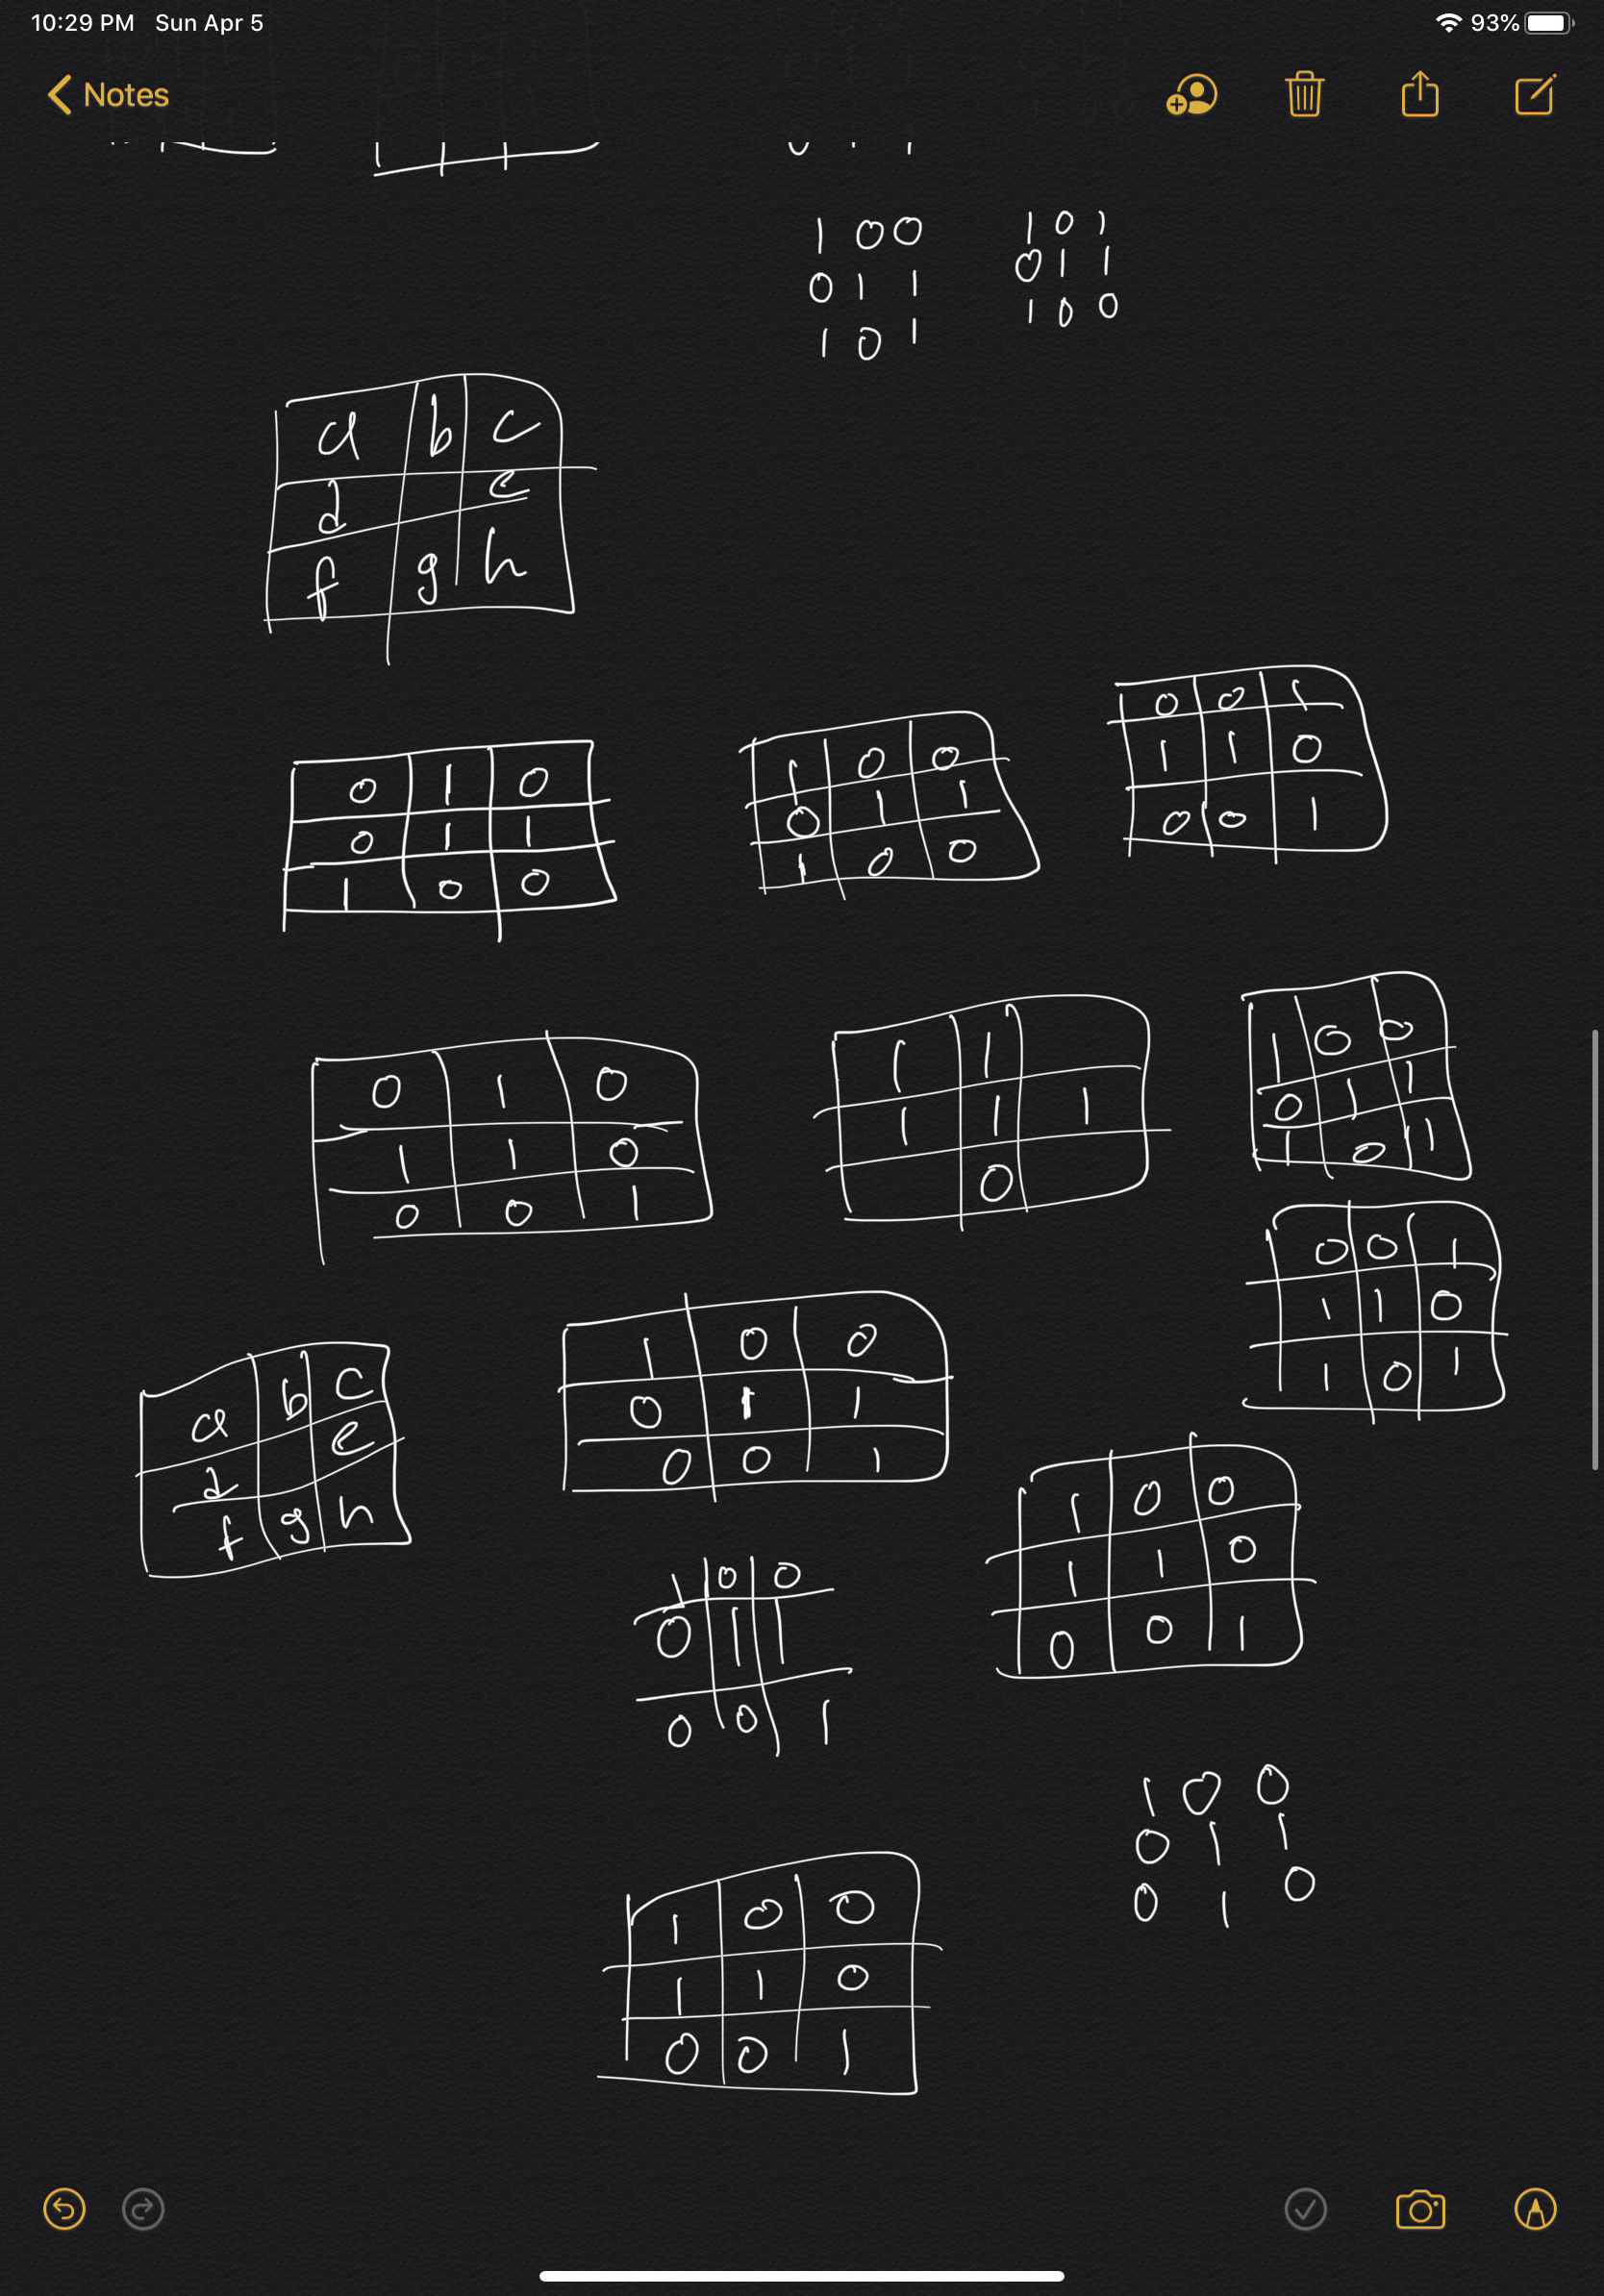 10:29 PM Sun Apr 5 93%
Notes
1 0 0
0 1 1
1 0 1
1 0 1
0 1 1
1 0 0
a b c
d e
f g h
0 1 0
0 1 1
1 0 0
1 0 0
0 1 1
1 0 0
0 0 1
1 1 0
0 0 1
0 1 0
1 1 0
0 0 1
1 1
1 1 1
0
1 0 0
0 1 1
1 0 1
0 0 1
1 1 0
1 0 1
a b c
d e
f g h
1 0 0
0 1 1
0 0 1
1 0 0
1 1 0
0 0 1
1 0 0
0 1 1
0 0 1
1 0 0
0 1 1
0 1 0
1 0 0
1 1 0
0 0 1